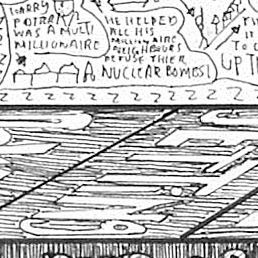 HARRY
POTTR
WAS A MULTI
MILLIONAIRE
HE HELPED
ALL HIS
MILLIONAIRE
NEIGHBOURS
REFUSE THIER
NUCLEAR BOMBS!
IT
TO C
UP T
Z Z Z Z Z Z Z Z Z Z Z